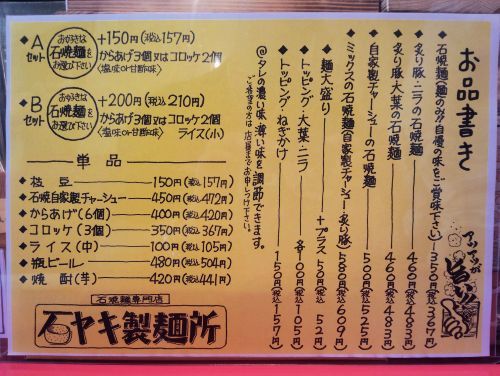 お品書き
◆石焼麺(麺のみ!!自慢の味をご賞味下さい) 350円(税込367円)
◆炙り豚・ニラの石焼麺 460円(税込483円)
◆炙り豚・大葉の石焼麺 460円(税込483円)
◆自家製チャーシューの石焼麺 500円(税込525円)
◆ミックスの石焼麺(自家製チャーシュー・炙り豚) 580円(税込609円)
◆麺大盛り +プラス50円(税込52円)
◆トッピング・大葉・ニラ 各100円(税込105円)
◆トッピング・ねぎかけ 150円(税込157円)
@タレの濃い味、薄い味を調節できます。
ご希望の方は店員までお申しつけ下さい。
アツアツが
◆Aセット
お好きな
石焼麺を
お選び下さい
+150円(税込157円)
からあげ3個又はコロッケ2個
(塩味or甘酢味)
◆Bセット
お好きは
石焼麺を
お選び下さい
+200円(税込210円)
からあげ3個又はコロッケ2個
(塩味or甘酢味) ライス(小)
単品
◆枝豆 150円(税込157円)
◆石焼自家製チャーシュー 450円(税込472円)
◆からあげ(6個) 400円(税込420円)
◆コロッケ(3個) 350円(税込367円)
◆ライス(中) 100円(税込105円)
◆瓶ビール 480円(税込504円)
◆焼酎(芋) 420円(税込441円)
石焼麺専門店
石ヤキ製麺所